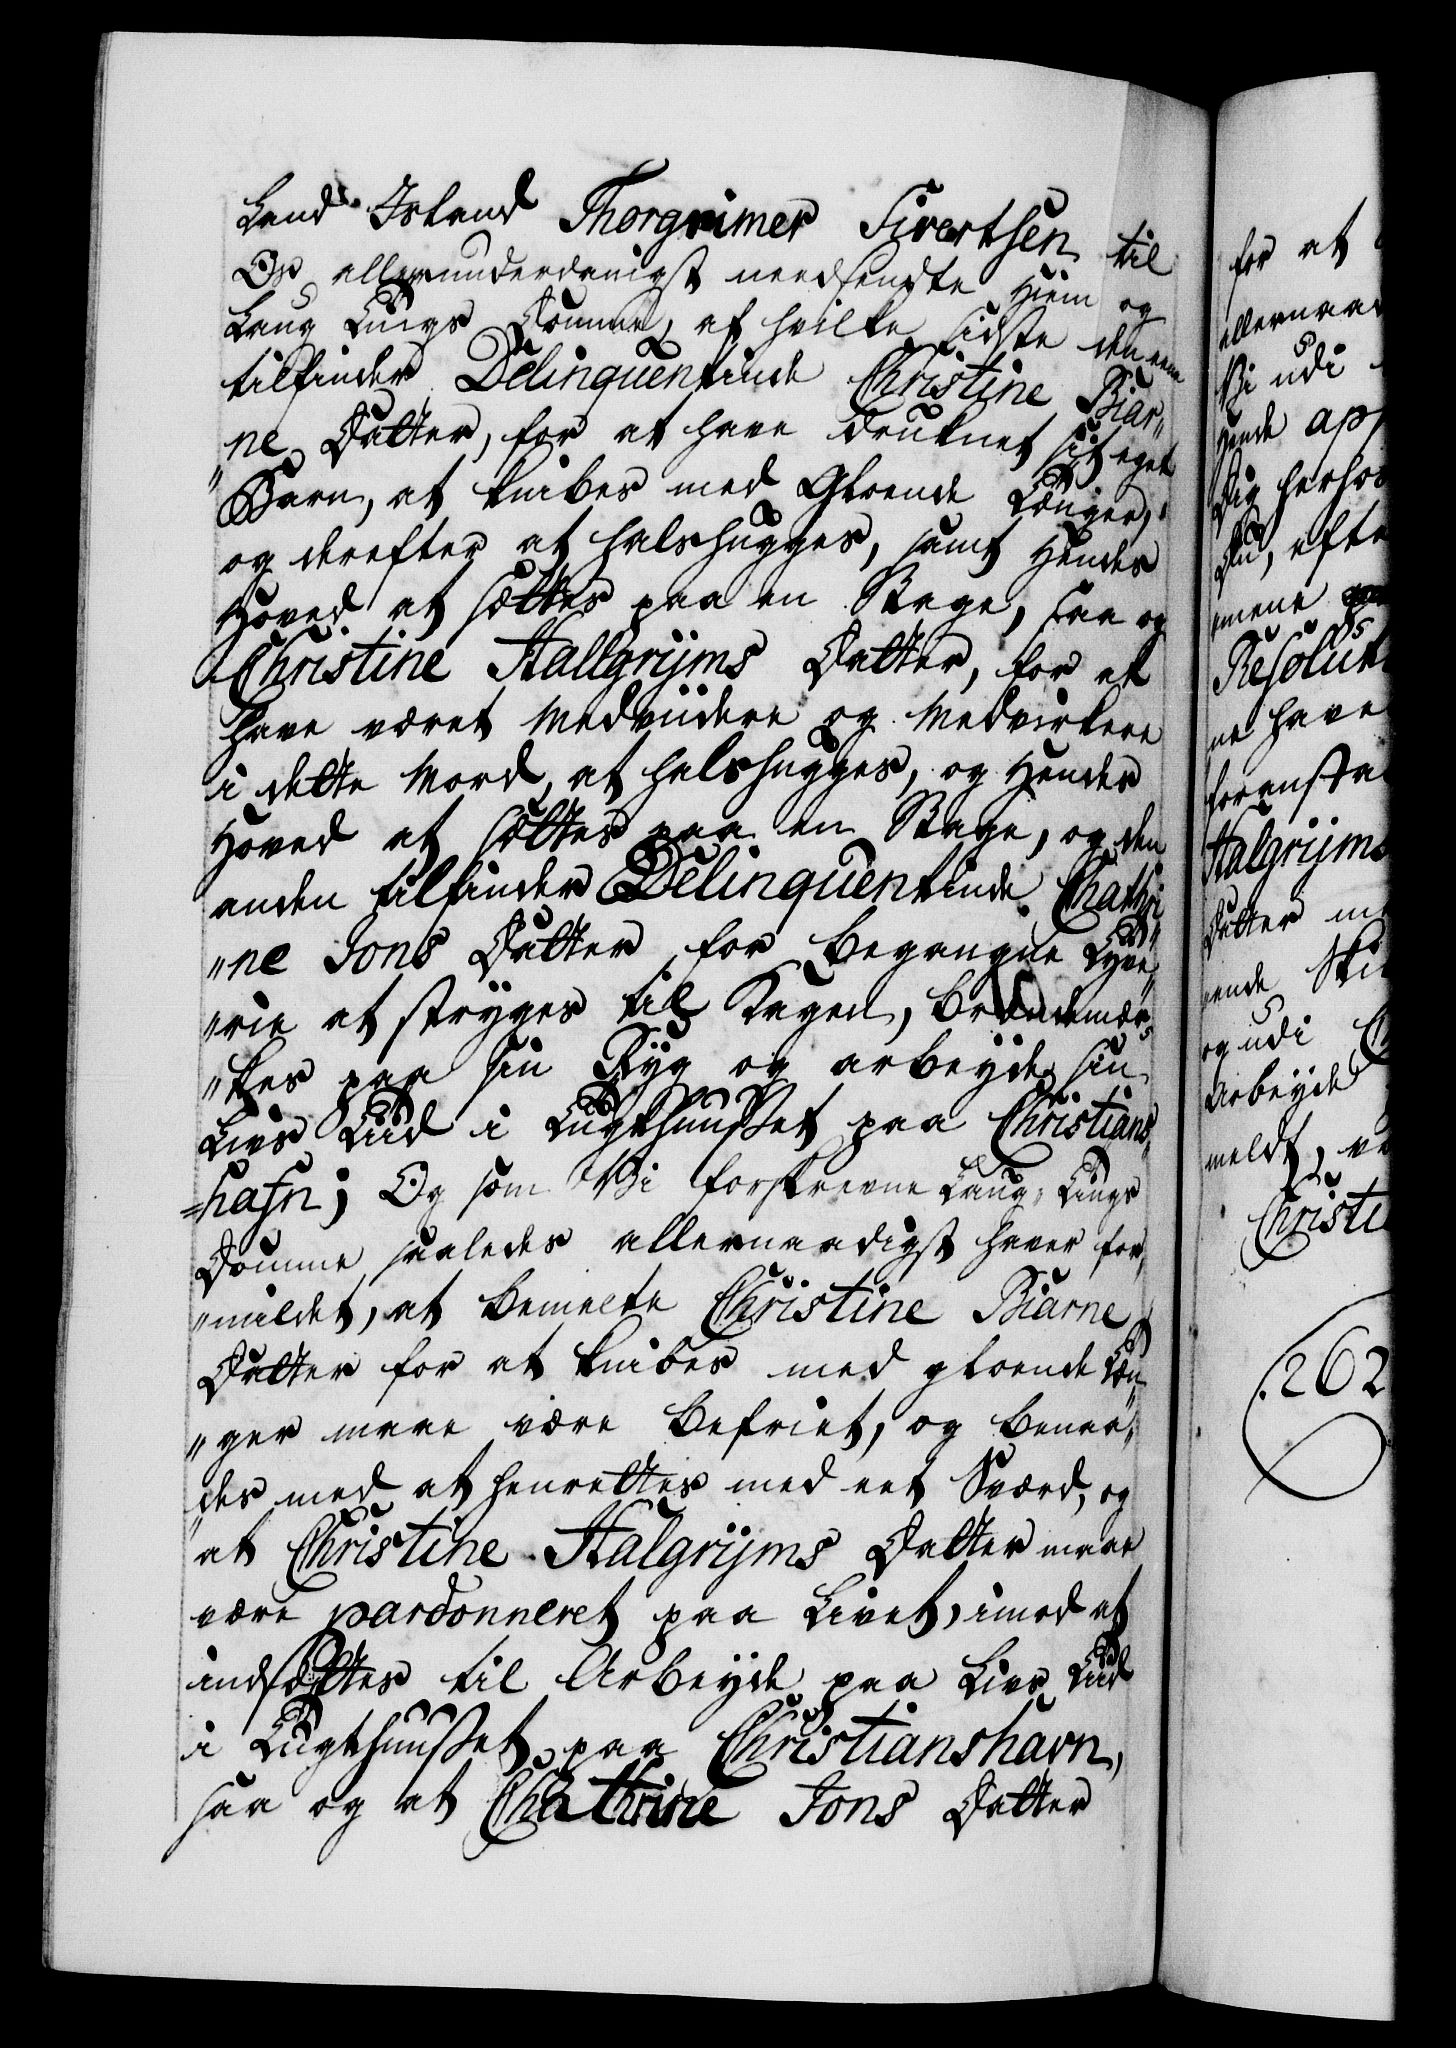 Land Island Thorgrimer Sivertsen til
Os allerunderdanigst needsendte Hiem og
Laug Tings Domme, af hvilke sidste den eene
tilfinder Delinquentinde Christine Biar„
„ne Datter, for at have druknet sit eget
Barn, at knibes med Gloende Tænger,
og derefter at halshugges, samt Hendes
Hoved at sættes paa en Stage, saa og
Christine Hallgrijms Datter, for at
have været Medviidere og Medvirkere
i dette Mord, at halshugges, og Hendes
Hoved at sættes paa en Stage, og den
anden tilfinder Delinquentinde Chathri
„ne Jons Datter for begangne Tyve„
„rie at stryges til Kagen, brændemær„
„kes paa sin Ryg og arbeyde sin
Livs Tiid i Tugthuusset paa Christians„
=hafn; Og som Vi forskrevne Laug-Tings
Domme saaledes allernaadigst haver for„
„mildet, at bemelte Christine Biarne
Datter for at knibes med gloende Tæn„
„ger maae være befriet, og benaa„
„des med at henrettes med eet Sværd, og
at Christine Halgrijms Datter maae
være pardonneret paa Livet, imod at
indsættes til Arbeyde paa Livs Tiid
i Tugthuusset paa Christianshavn,
saa og at Chathrine Jons Datter
for at
allernaad
Vi udi
Hende app
Dig herhos
Du, efte
mene
Resolut
ne have
foransta
Halgrijms
Datter m
ende Ski
og udi Ch
Arbeyde
meldt, ve
Christi
262